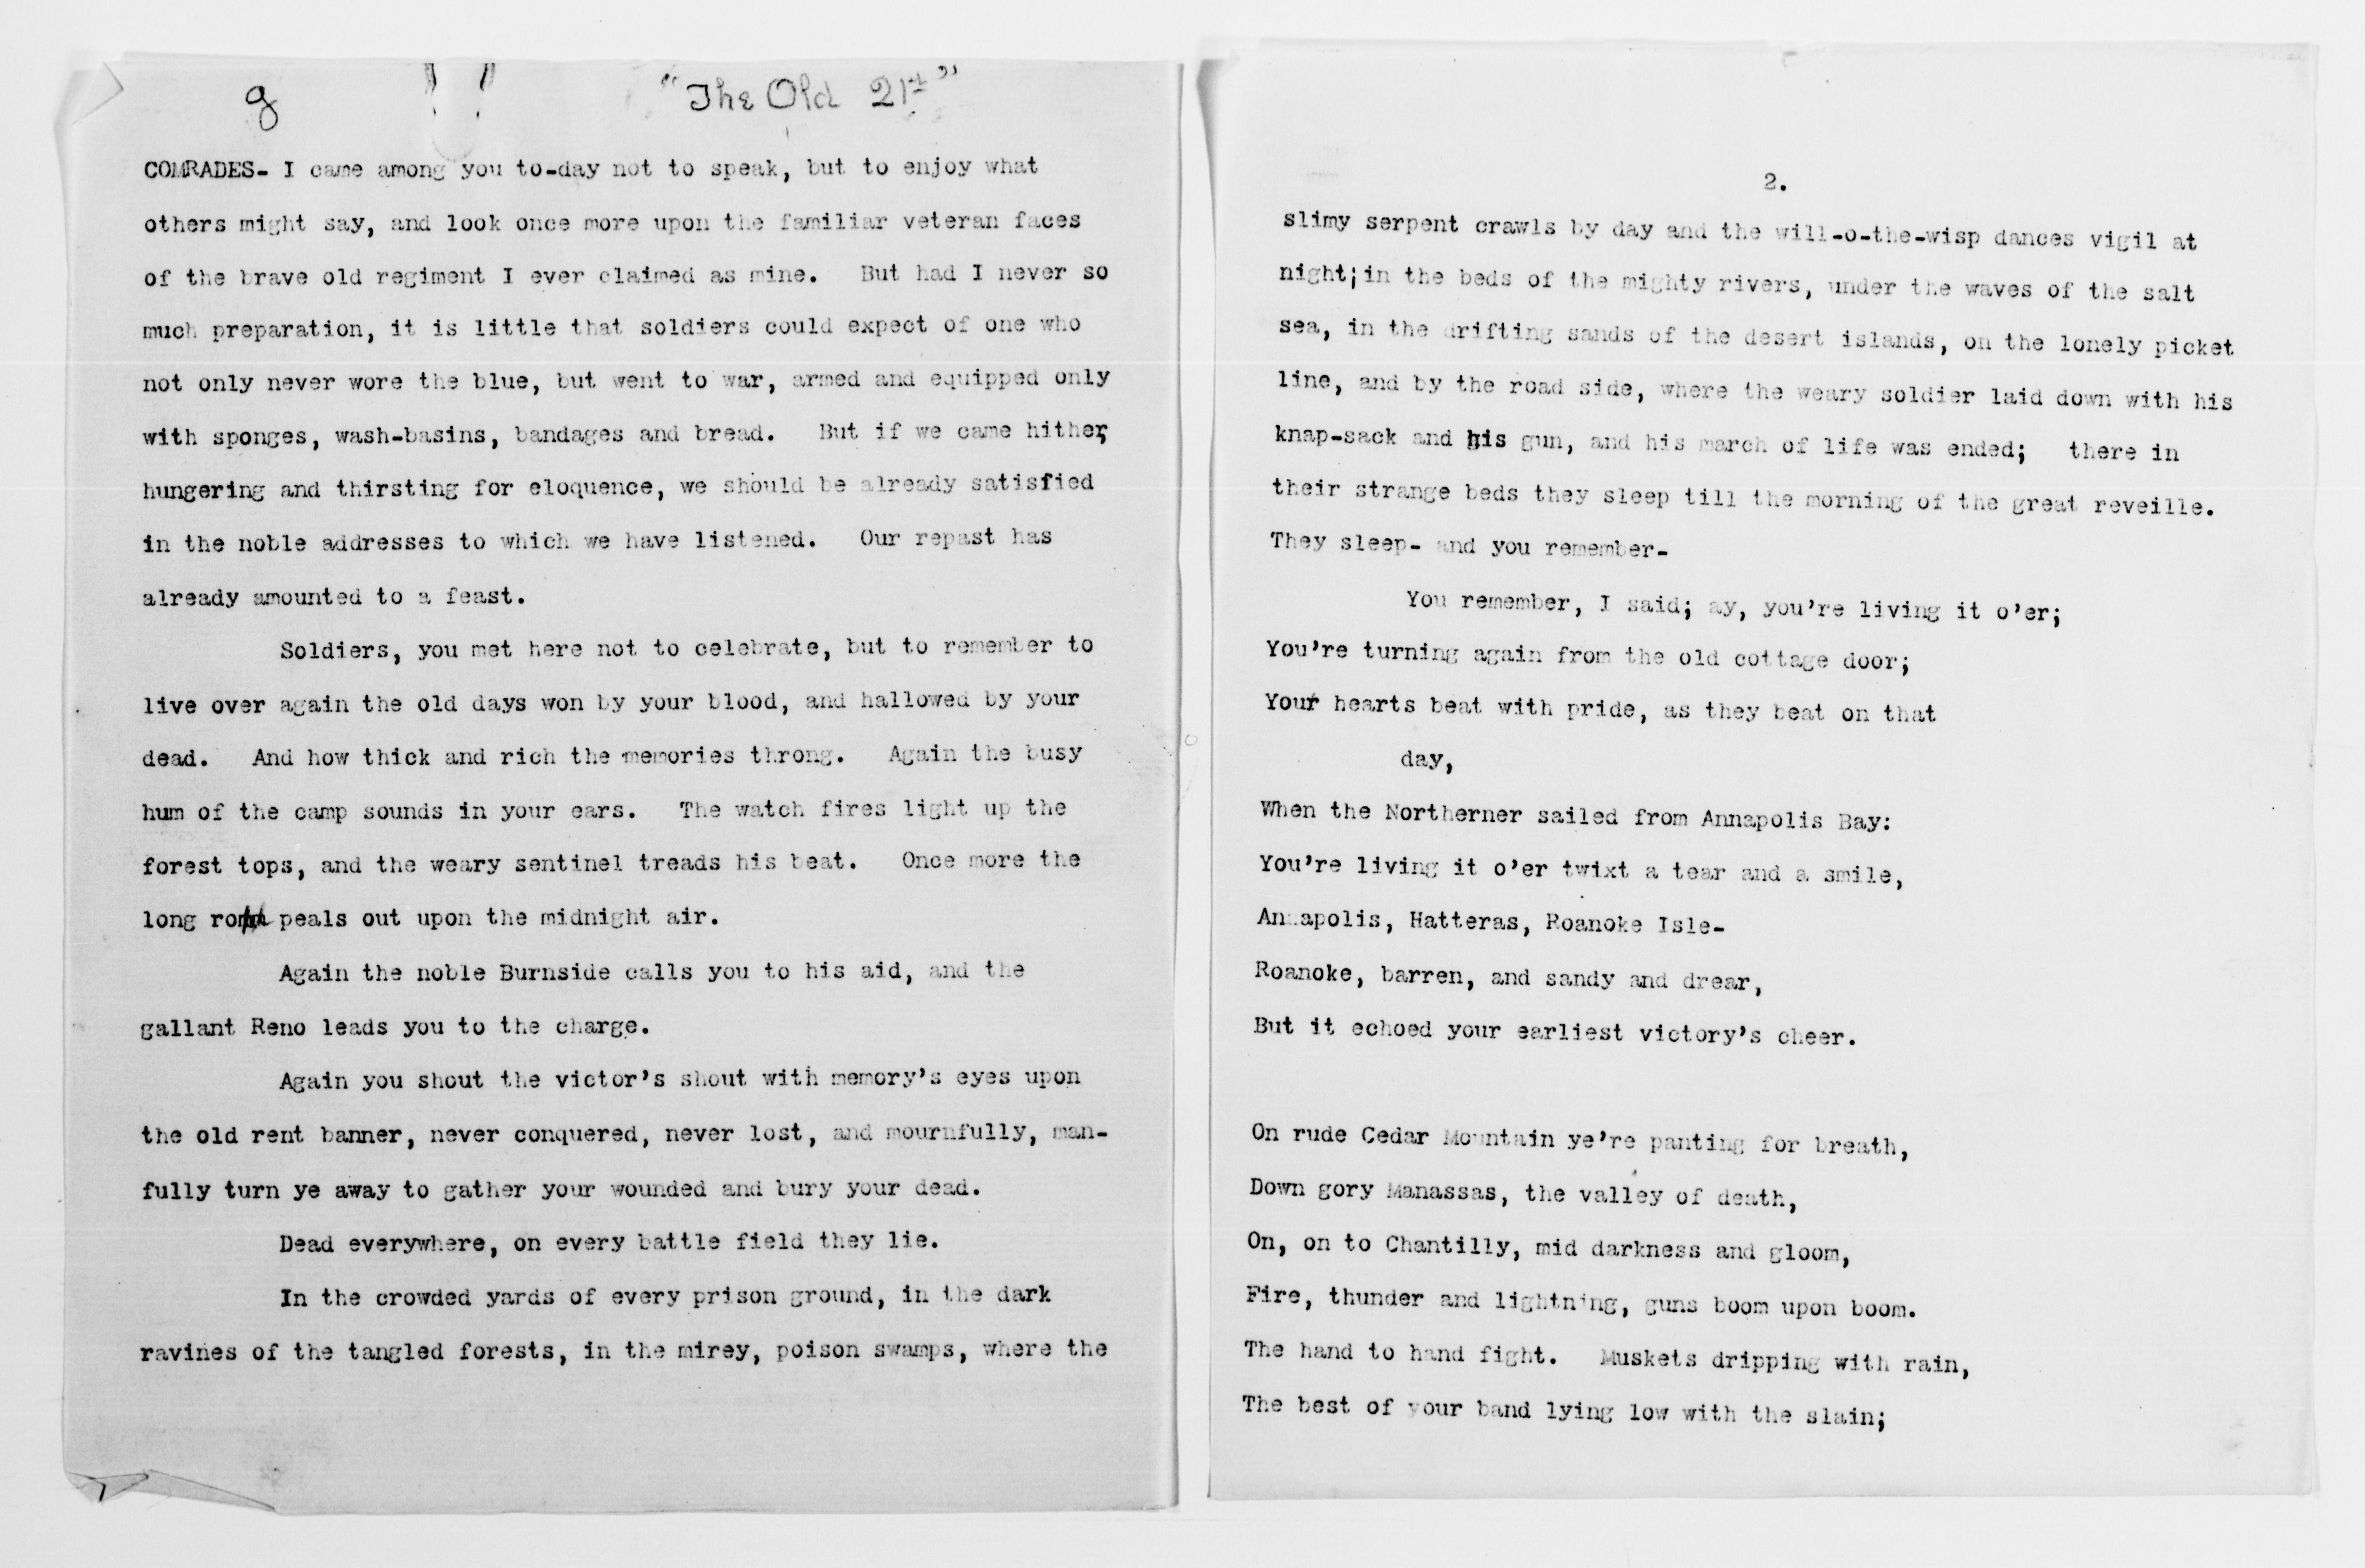 g
"The Old 21st"
COMRADES- I came among you to-day not to speak, but to enjoy what
others might say, and look once more upon the familiar veteran faces
of the brave old regiment I ever claimed as mine. But had I never so
much preparation, it is little that soldiers could expect of one who
not only never wore the blue, but went to war, armed and equipped only
with sponges, wash-basins, bandages and bread. But if we came hither,
hungering and thirsting for eloquence, we should be already satisfied
in the noble addresses to which we have listened. Our repast has
already amounted to a feast.
Soldiers, you met here not to celebrate, but to remember to
live over again the old days won by your blood, and hallowed by your
dead. And how thick and rich the memories throng. Again the busy
hum of the camp sounds in your ears. The watch fires light up the
forest tops, and the weary sentinel treads his beat. Once more the
long peals out upon the midnight air.
Again the noble Burnside calls you to his aid, and the
gallant Reno leads you to the charge.
Again you shout the victor's shout with memory's eyes upon
the old rent banner, never conquered, never lost, and mournfully, man-
fully turn ye away to gather your wounded and bury your dead.
Dead everywhere, on every battle field they lie.
In the crowded yards of every prison ground, in the dark
ravines of the tangled forests, in the mirey, poison swamps, where the
2.
slimy serpent crawls by day and the will-o-the-wisp dances vigil at
night;in the beds of the mighty rivers, under the waves of the salt
sea, in the drifting sands of the desert islands, on the lonely picket
line, and by the road side, where the weary soldier laid down with his
knap-sack and his gun, and his march of life was ended; there in
their strange beds they sleep till the morning of the great reveille.
They sleep- and you remember-
You remember, I said; ay, you're living it o'er;
You're turning again from the old cottage door;
Your hearts beat with pride, as they beat on that
day,
When the Northerner sailed from Annapolis Bay:
You're living it o'er twixt a tear and a smile,
Annapolis, Hatteras, Roanoke Isle-
Roanoke, barren, and sandy and drear,
But it echoed your earliest victory's cheer.
On rude Cedar Mountain ye're panting for breath,
Down gory Manassas, the valley of death,
On, on to Chantilly, mid darkness and gloom,
Fire, thunder and lightning, guns boom upon boom.
The hand to hand fight. Muskets dripping with rain,
The best of your band lying low with the slain;